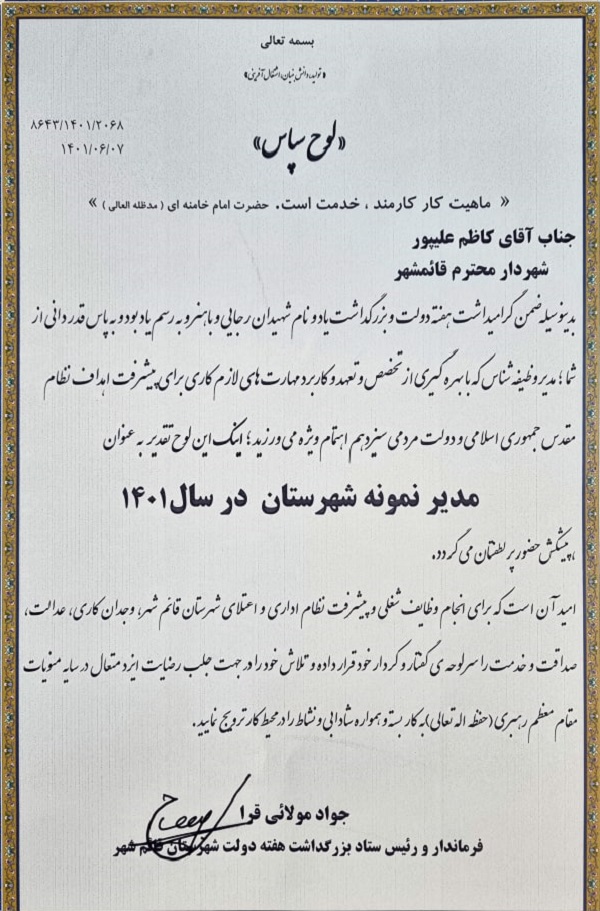 بسمه تعالی
«تولید، دانش بنیان، اشتغال آفرینی»
۸۶۴۳/۱۴۰۱/۲۰۶۸
۱۴۰۱/۰۶/۰۷
«لوح سپاس»
« ماهیت کار کارمند ، خدمت است. حضرت امام خامنه ای ( مدظله العالی ) »
جناب آقای کاظم علیپور
شهردار محترم قائمشهر
بدینوسیله ضمن گرامیداشت هفته دولت و بزرگداشت یاد و نام شهیدان رجایی و باهنر و به رسم یادبود و به پاس قدردانی از
شما؛ مدیر وظیفه شناس که با بهره گیری از تخصص و تعهد و کاربرد مهارت های لازم کاری برای پیشرفت اهداف نظام
مقدس جمهوری اسلامی و دولت مردمی سیزدهم اهتمام ویژه می ورزید؛ اینک این لوح تقدیر به عنوان
مدیر نمونه شهرستان در سال۱۴۰۱
، پیشکش حضور پر لطفتان می گردد.
امید آن است که برای انجام وظایف شغلی و پیشرفت نظام اداری و اعتلای شهرستان قائم شهر، وجدان کاری، عدالت،
صداقت و خدمت را سرلوحه ی گفتار و کردار خود قرار داده و تلاش خود را در جهت جلب رضایت ایزد متعال در سایه منویات
مقام معظم رهبری (حفظه اله تعالی) به کار بسته و همواره شادابی و نشاط را در محیط کار ترویج نمایید.
جواد مولائی قرا
فرماندار و رئیس ستاد بزرگداشت هفته دولت شهرستان قائم شهر